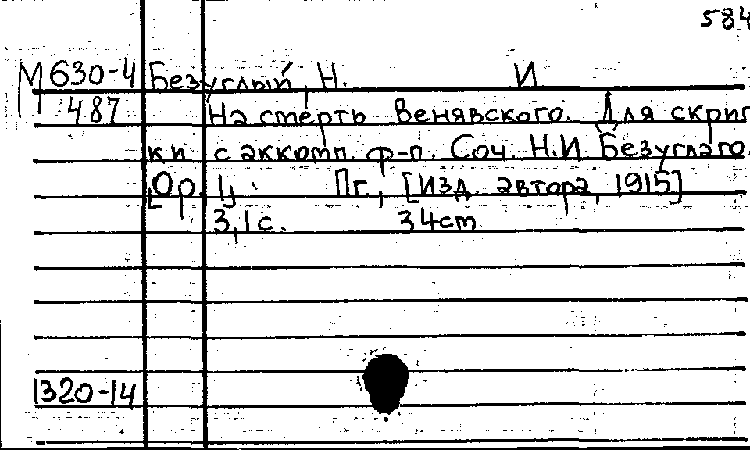 584
М630-4 Безуглый, Н. И.
487 На смерть Венявского. Для скрип
ки с аккомп. ф-п. Соч. Н.И Безуглаго.
[Ор. 1]. Пг., [Изд. автора, 1915]
3,1с. 34cm
1320-14